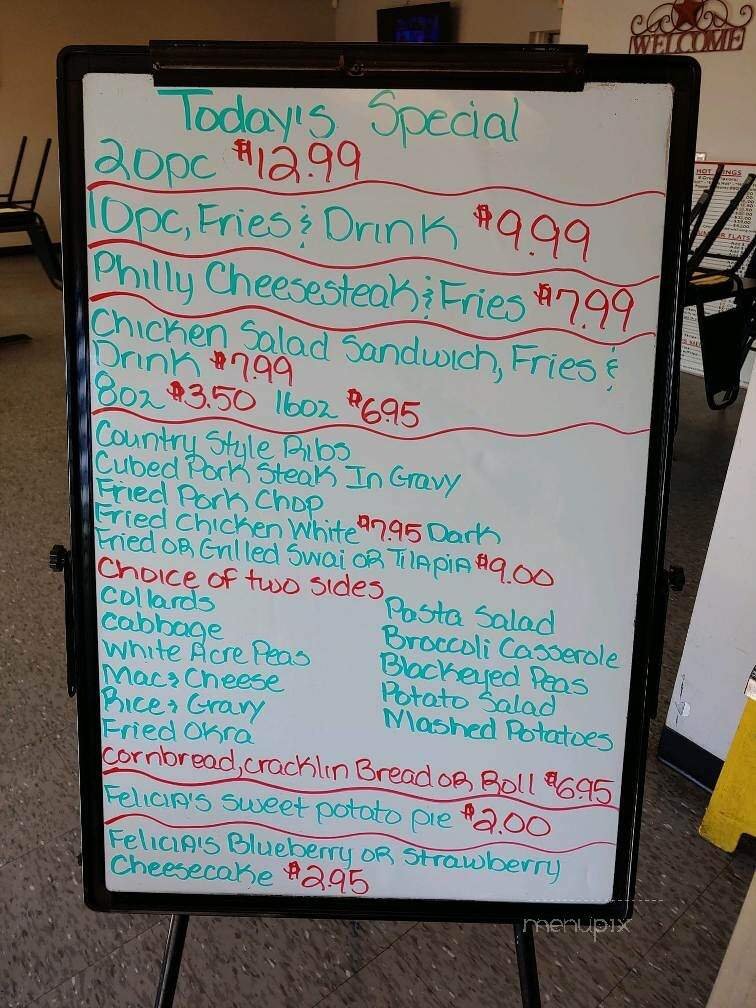 WELCOME
Today's Special
20pc $12.99
10pc, Fries & Drink $9.99
Philly Cheesesteak & Fries $7.99
Chicken Salad Sandwich, Fries &
Drink $7.99
8oz $3.50 16oz $6.95
Country Style Ribs
Cubed Pork Steak In Gravy
Fried Pork Chop
Fried Chicken White $7.95 Dark
Fried OR Grilled Swai OR Tilapia $9.00
Choice of two sides
Collards
Cabbage
White Acre Peas
Mac & Cheese
Rice & Gravy
Fried Okra
Pasta Salad
Broccoli Casserole
Blackeyed Peas
Potato Salad
Mashed Potatoes
Cornbread, cracklin Bread OR Roll $6.95
Felicia's sweet potato pie $2.00
Felicia's Blueberry OR Strawberry
Cheesecake $2.95
menupix